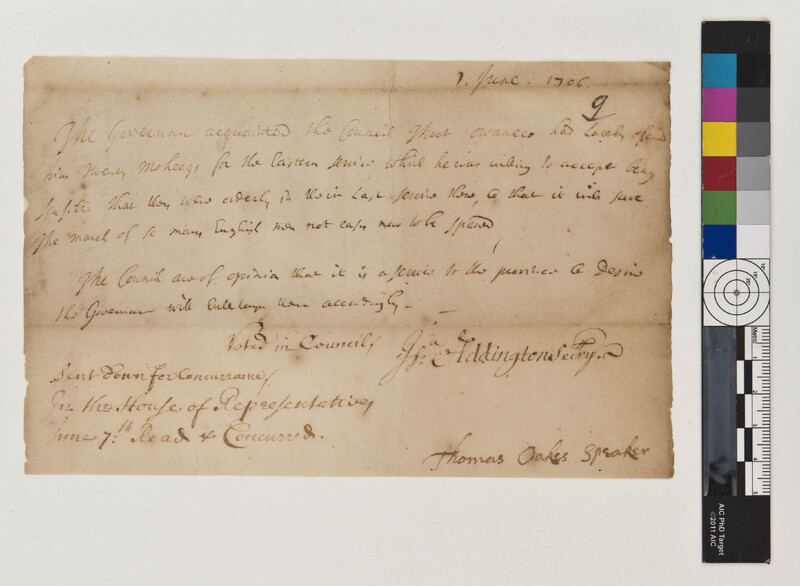 7. June. 1706.
9
The Governour acquainted the Council that owaneco had lately offerd
him twenty moheegs for the Eastern service which he was willing to accept being
sensible that they were orderly in their Last service there, & that it will save
the march of so many English men not easy now to be spared
The Council are of opinion that it is a service to the province & Desire
the Governour will accordingly.
Voted in Council,
Isa Addington Secry.
Sent down for Concurrance,
In the House of Representatives
June 7.th Read & Concurrd.
Thomas Oakes Speaker
AIC PhD Target
©2011 AIC